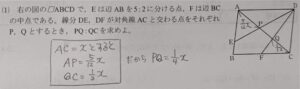 (1) 右の図の▱ABCDで、Eは辺ABを5:2に分ける点、Fは辺BC
の中点である。線分DE、DFが対角線ACと交わる点をそれぞれ
P、Qとするとき、PQ:QCを求めよ。
AC=xとすると
AP=5/12 x
QC=1/3 x
だから PQ=1/4 x
A
D
5/12 x
P
E
Q
B
F
C